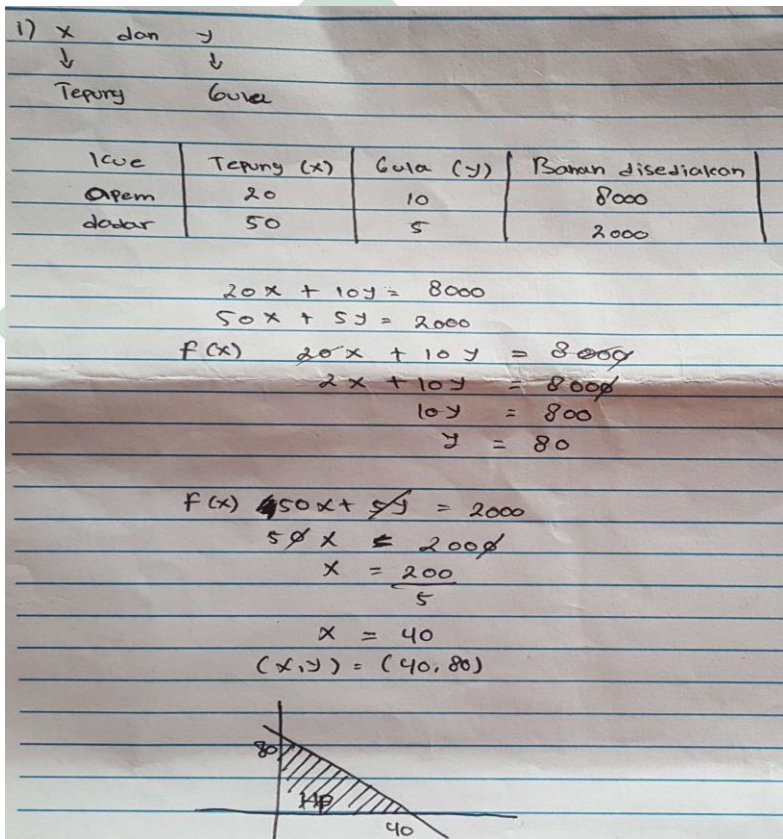 1) x dan y
↓ ↓
Tepung Gula
Kue | Tepung (x) | Gula (y) | Bahan disediakan
apem | 20 | 10 | 8000
dadar | 50 | 5 | 2000
20x + 10y = 8000
50x + 5y = 2000
F(x) 20x + 10y = 8000
2x + 10y = 8000
10y = 800
y = 80
F(x) 50x + 5y = 2000
50x = 2000
x = 200
5
x = 40
(x,y) = (40,80)
80
HP
40